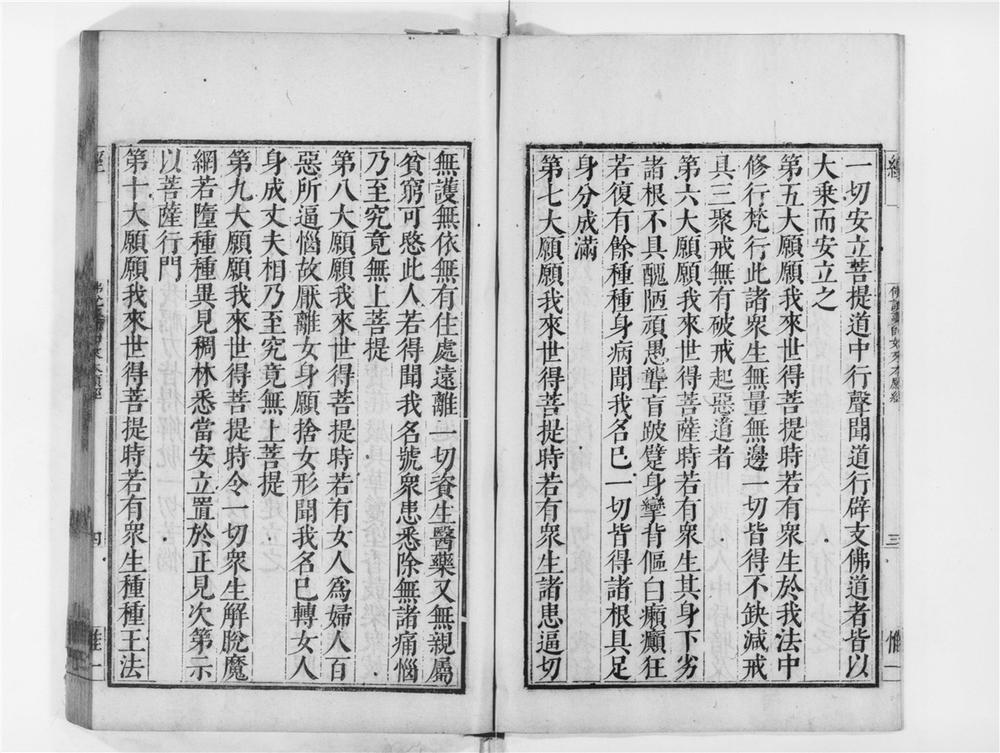 一切安立菩提道中行聲聞道行辟支佛道者皆以
大乘而安立之
第五大願願我來世得菩提時若有衆生於我法中
修行梵行此諸衆生無量無邊一切皆得不缺減戒
具三聚戒無有破戒起惡道者
第六大願願我來世得菩薩時若有衆生其身下劣
諸根不具醜陋頑愚聾盲跛躄身攣背傴白癩癲狂
若復有餘種種身病聞我名已一切皆得諸根具足
身分成滿
第七大願願我來世得菩提時若有衆生諸患逼切
無護無依無有住處遠離一切資生醫藥又無親屬
貧窮可愍此人若得聞我名號衆患悉除無諸痛惱
乃至究竟無上菩提
第八大願願我來世得菩提時若有女人爲婦人百
惡所逼惱故厭離女身願捨女形聞我名已轉女人
身成丈夫相乃至究竟無上菩提
第九大願願我來世得菩提時令一切衆生解脫魔
網若墮種種異見稠林悉當安立置於正見次第示
以菩薩行門
第十大願願我來世得菩提時若有衆生種種王法
經
三
四